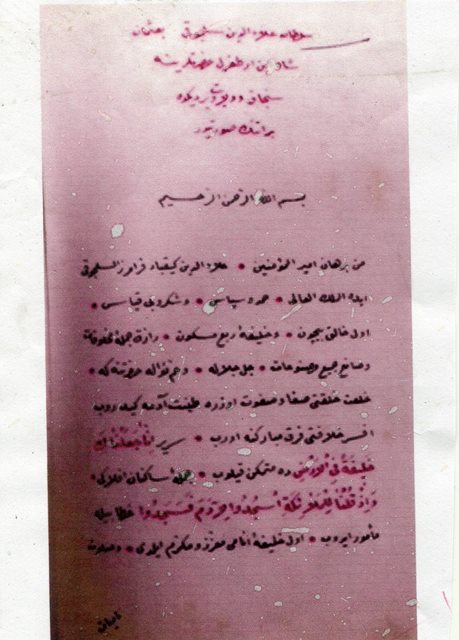 سلطان علاءالدین سلجوقی بعثمان
شاه بن ارطغرل حضرتلرینه
سنجاق و ویردیکی
براتنك صورتیدر
بسم الله الرحمن الرحیم
من برهان امیر المؤمنین * علاءالدین کیقباد فرامرز السلجوقی
ایده الملك العالی * حمد و سپاس * و شکر بی قیاس *
اول خالق بیچون * و خلیفۀ ربع مسکون * و رازق جملۀ مخلوقات
و صانع جمیع مصنوعات * جل جلاله * و عم نواله حضرتنه که *
خلعت خلقتی صفا و صفوت اوزره طینت آدمه کیدروب
افسر خلافتی فرق مبارکنه اورب * سریر اِنَّا جَعَلْنَاكَ
خَلِیفَةً فِی الْاَرْضِ ده متمکن قیلوب * جمله ساکنان افلاکی *
وَاِذْ قُلْنَا لِلْمَلٰئِكَةِ اسْجُدُوا لِاٰدَمَ فَسَجَدُوا خطابیله
مأمور ایدوب * اول خلیفۀ انامی معزز و مکرم ایلدی * و صلوت